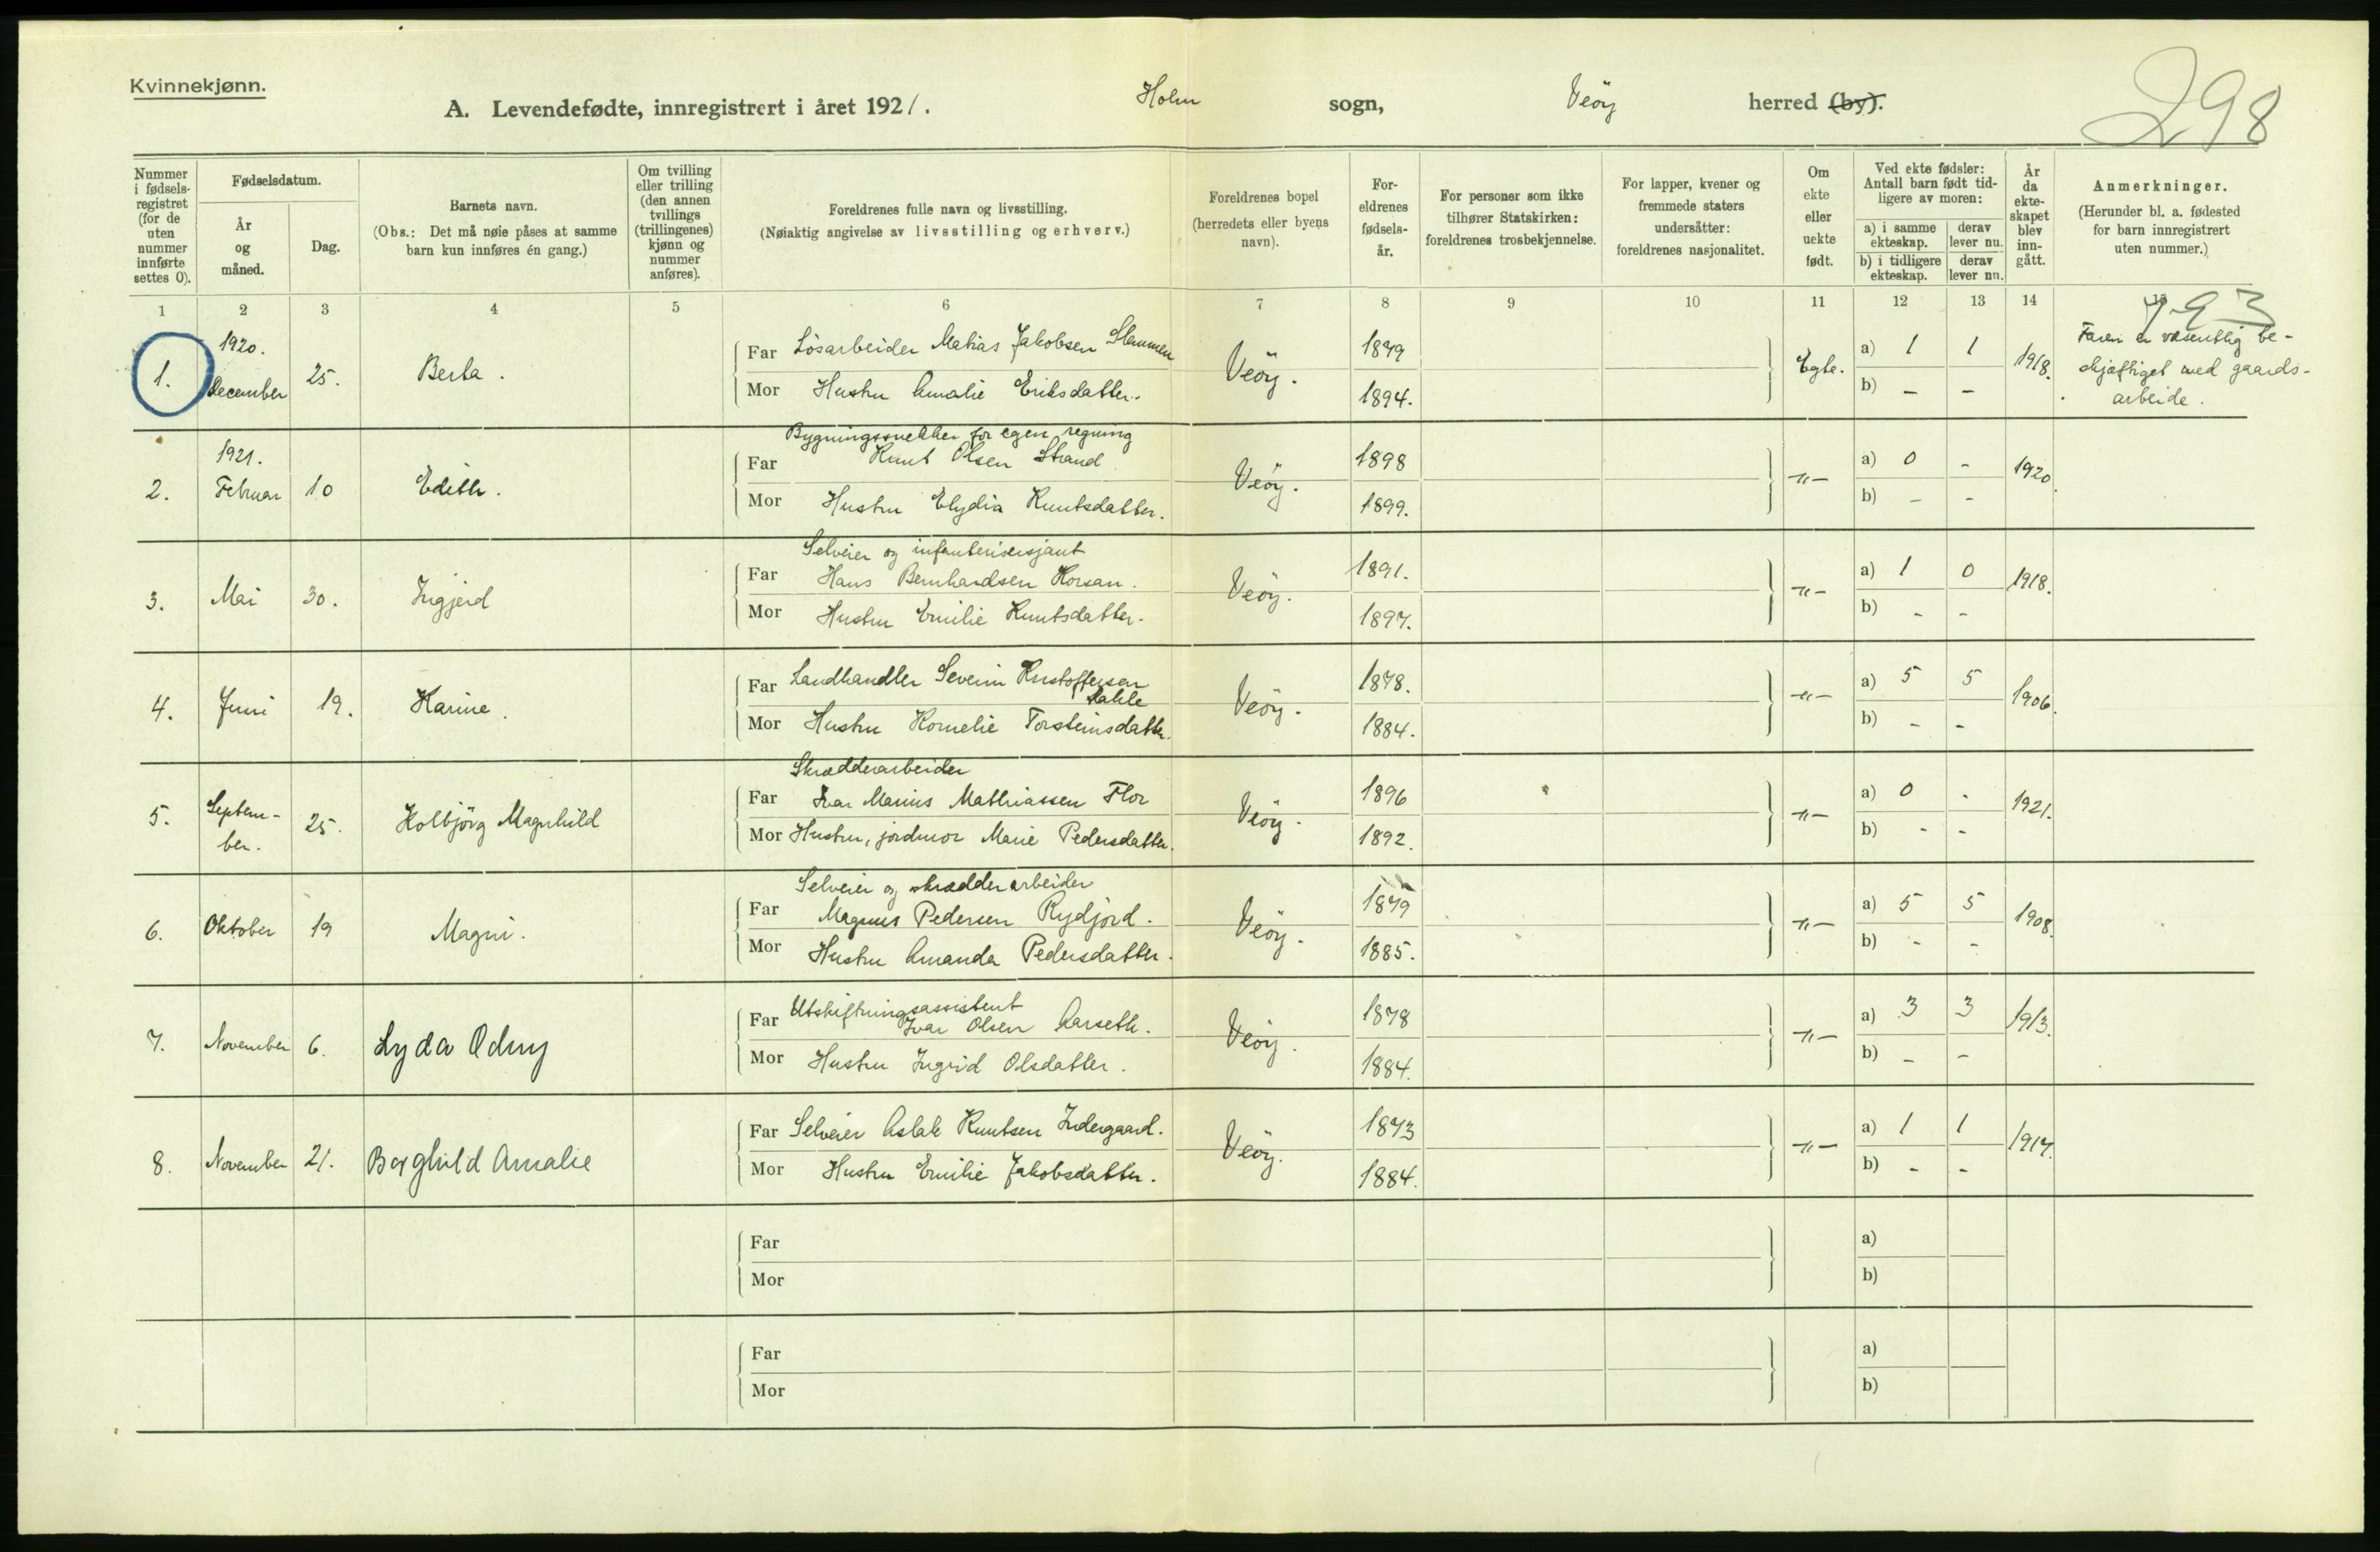 Kvinnekjønn.
A. Levendefødte, innregistrert i året 1921. Holm sogn, Veöy herred (by).
298
Nummer i fødselsregistret (for de uten nummer innførte settes 0).
Fødselsdatum.
År og måned.
Dag.
Barnets navn.
(Obs.: Det må nøie påses at samme barn kun innføres én gang.)
Om tvilling eller trilling (den annen tvillings (trillingenes) kjønn og nummer anføres).
Foreldrenes fulle navn og livsstilling.
(Nøiaktig angivelse av livsstilling og erhverv.)
Foreldrenes bopel (herredets eller byens navn).
Foreldrenes fødselsår.
For personer som ikke tilhører Statskirken: foreldrenes trosbekjennelse.
For lapper, kvener og fremmede staters undersåtter: foreldrenes nasjonalitet.
Om ekte eller uekte født.
Ved ekte fødsler: Antall barn født tidligere av moren:
a) i samme ekteskap. derav lever nu.
b) i tidligere ekteskap. derav lever nu.
År da ekteskapet blev inngått.
Anmerkninger.
(Herunder bl. a. fødested for barn innregistrert uten nummer.)
1 2 3 4 5 6 7 8 9 10 11 12 13 14
1. 1920. December 25. Berta.
Far Lösarbeider Matias Jakobsen Stemmen
Mor Hustru Amalie Eriksdatter.
Veöy. 1879 1894. Egte. a) 1 1 b) – – 1918.
Faren er væsentlig be-
skjæftiget med gaards-
arbeide.
2. 1921. Februar 10 Edith.
Bygningssnekker for egen regning
Far Knut Olsen Strand
Mor Hustru Elydia Knutsdatter.
Veöy. 1898 1899. -"- a) 0 - b) - - 1920.
3. Mai 30. Ingjerd
Selveier og infanterisersjant
Far Hans Bernhardsen Horsan.
Mor Hustru Emilie Knutsdatter.
Veöy. 1891. 1897. -"- a) 1 0 b) - - 1918.
4. Juni 19. Karine.
Far Landhandler Severin Kristoffersen
Dahle
Mor Hustru Kornelie Torsteinsdatter.
Veöy. 1878. 1884. -"- a) 5 5 b) - - 1906.
5. Septem-
ber. 25. Kolbjörg Magnhild
Skrædderarbeider
Far Ivar Marius Mathiassen Flor
Mor Hustru, jordmor Marie Pedersdatter.
Veöy. 1896 1892. -"- a) 0 - b) - - 1921.
6. Oktober 19 Magni.
Selveier og skrædderarbeider
Far Magnus Pedersen Rydjord.
Mor Hustru Amanda Pedersdatter.
Veöy. 1879 1885. -"- a) 5 5 b) - - 1908.
7. November 6. Lyda Odny
Utskiftningsassistent
Far Ivar Olsen Aarseth.
Mor Hustru Ingrid Olsdatter.
Veöy. 1878 1884. -"- a) 3 3 b) - - 1913.
8. November 21. Borghild Amalie
Far Selveier Aslak Knutsen Indergaard.
Mor Hustru Emilie Jakobsdatter.
Veöy. 1873 1884. -"- a) 1 1 b) - - 1917.
Far a)
Mor b)
Far a)
Mor b)